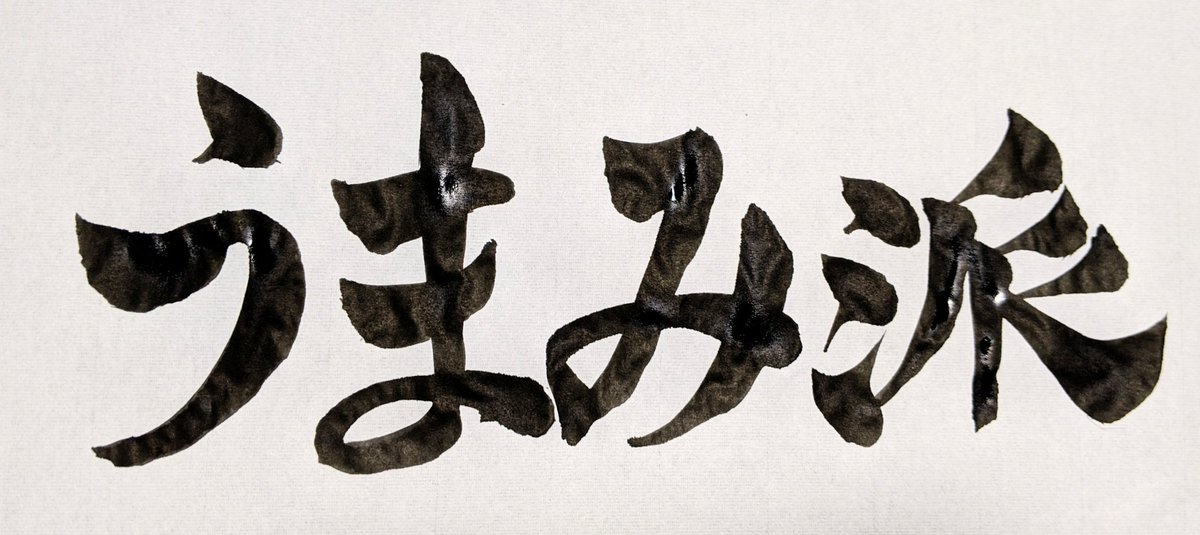 うまみ派